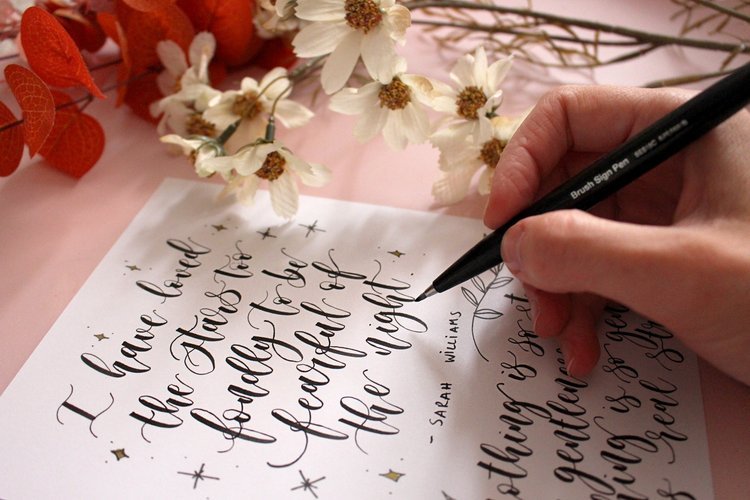 I have loved
the stars too
fondly to be
fearful of
the night
- SARAH WILLIAMS
nothing is so
gentleness
is so
real
Brush Sign Pen